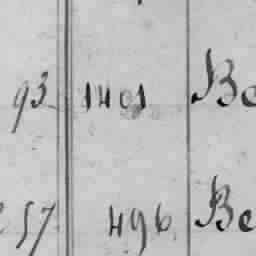 93 1401 Be
257 496 Be